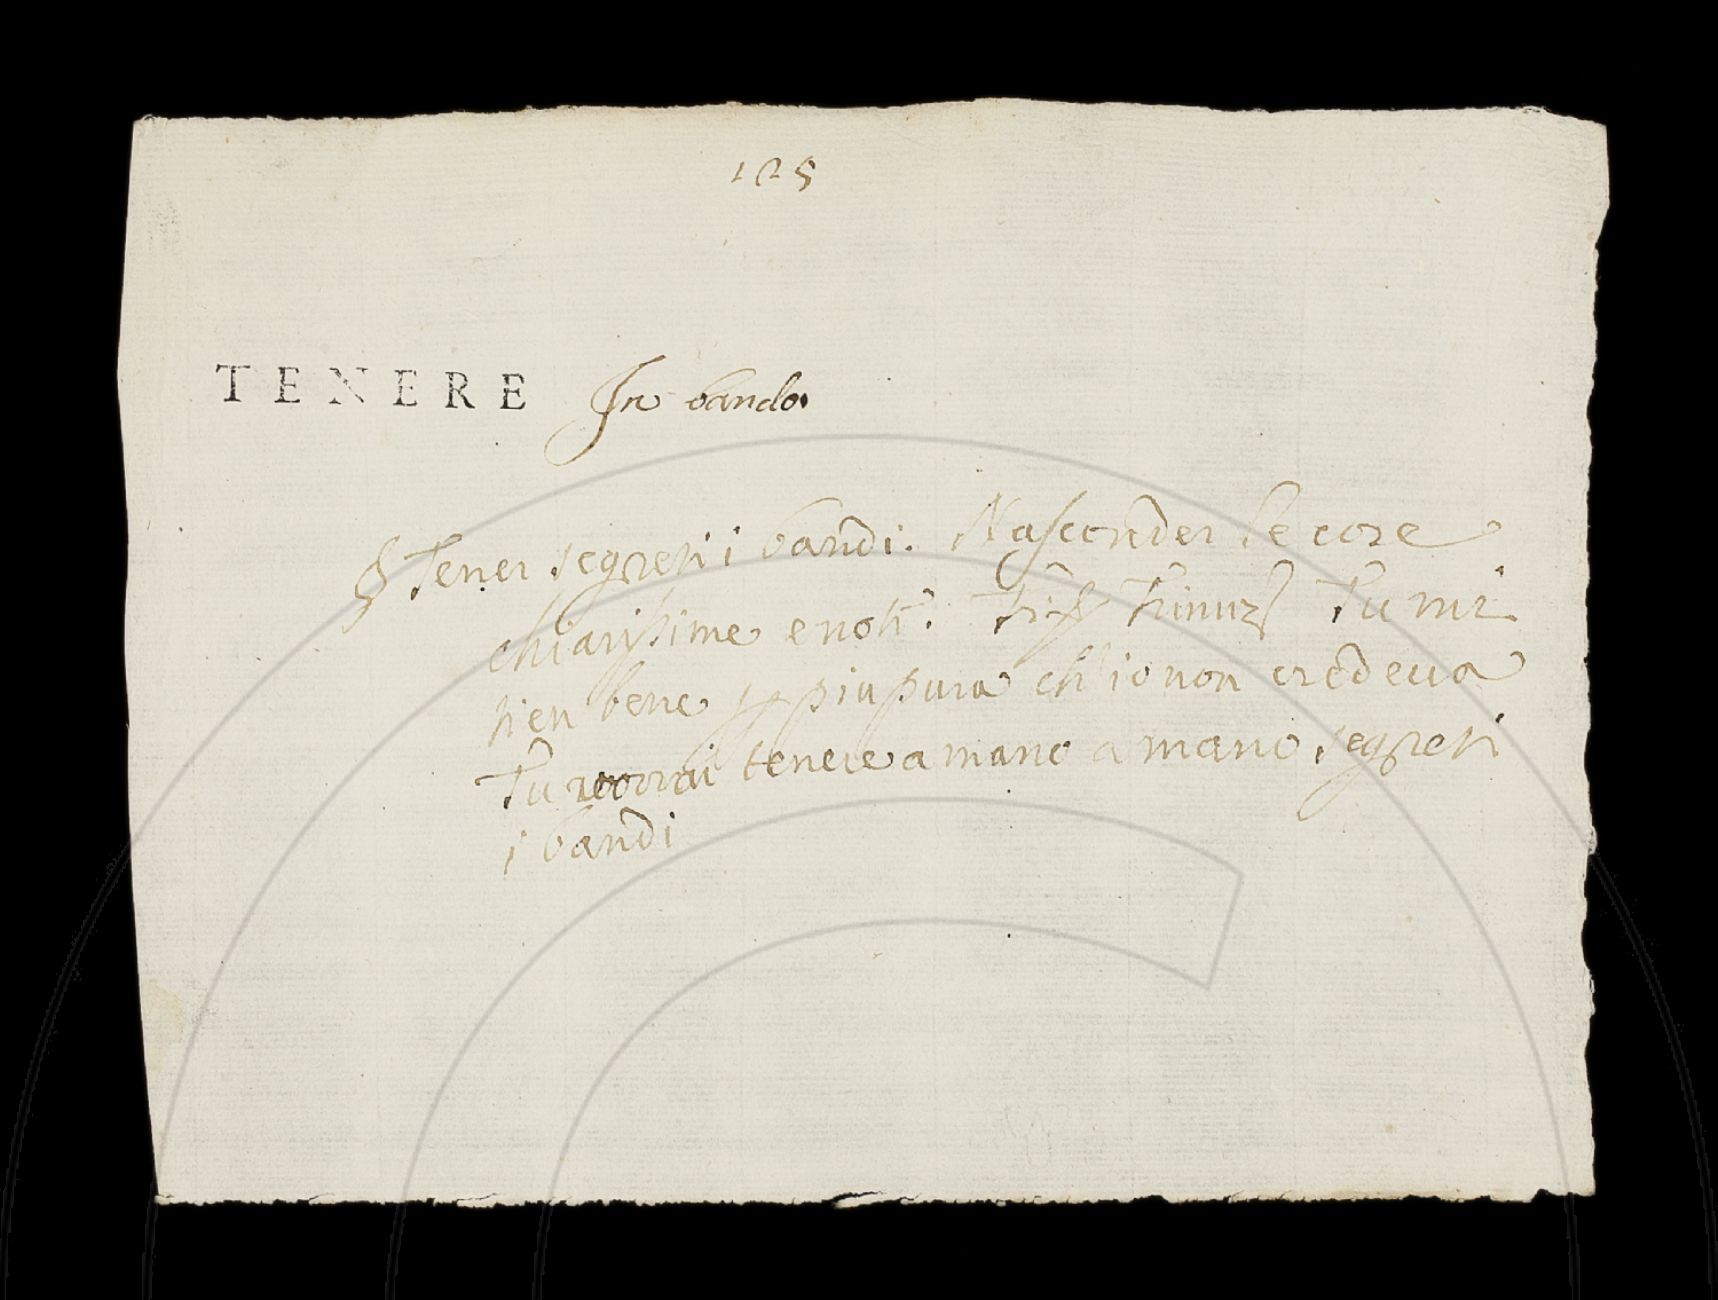 125
TENERE In bando.
Tener segreti i bandi. Nasconder le cose
chiarissime e noti. Trinuz. Tu mi
tien bene p piu pura ch'io non credeva
Tu vorrai tenere a mano a mano segreti
i bandi